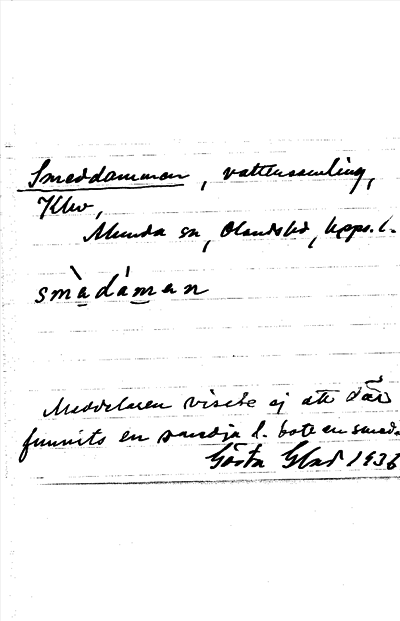 Smeddammen, vattensamling,
Munda sn, Olandshd, Upps. l.
smàdáman
Meddelaren visste ej att där
funnits en smedja l. bott en smed.
Gösta Glad 1936